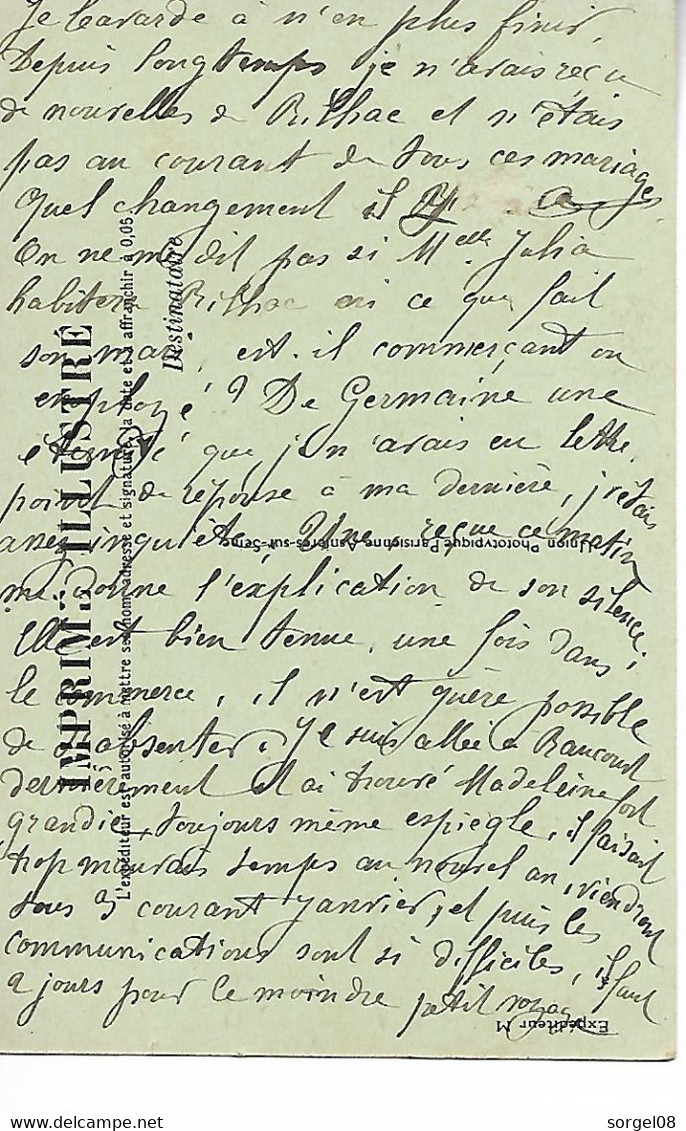 Je bavarde à n'en plus finir,
Depuis longtemps je n'avais reçu
de nouvelles de Rilhac et n'étais
pas au courant de tous ces mariages
Quel changement il y a
On ne me dit pas si Melle Julia
habitera Rilhac ni ce que fait
son mari, est-il commerçant ou
employé ? De Germaine une
éternité que je n'avais eu lettre
point de réponse à ma dernière, j'étais
assez inquiète, Une reçue ce matin
me donne l'explication de son silence,
Elle est bien tenue, une fois dans
le commerce, il n'est guère possible
de s'absenter, Je suis allée à Raucourt
dernièrement et ai trouvé Madeleine fort
grandie, toujours même espiègle, il faisait
trop mauvais temps au nouvel an, viendront
tous 3 courant Janvier, et puis les
communications sont si difficiles, il faut
2 jours pour le moindre petit voyage
IMPRIMÉ ILLUSTRÉ
L'expéditeur est autorisé à mettre ses nom, adresse et signature, la date et à affranchir à 0,05
Destinataire
L'Union Phototypique Parisienne Asnières-sur-Seine
Expéditeur M
www.delcampe.net
sorgel08